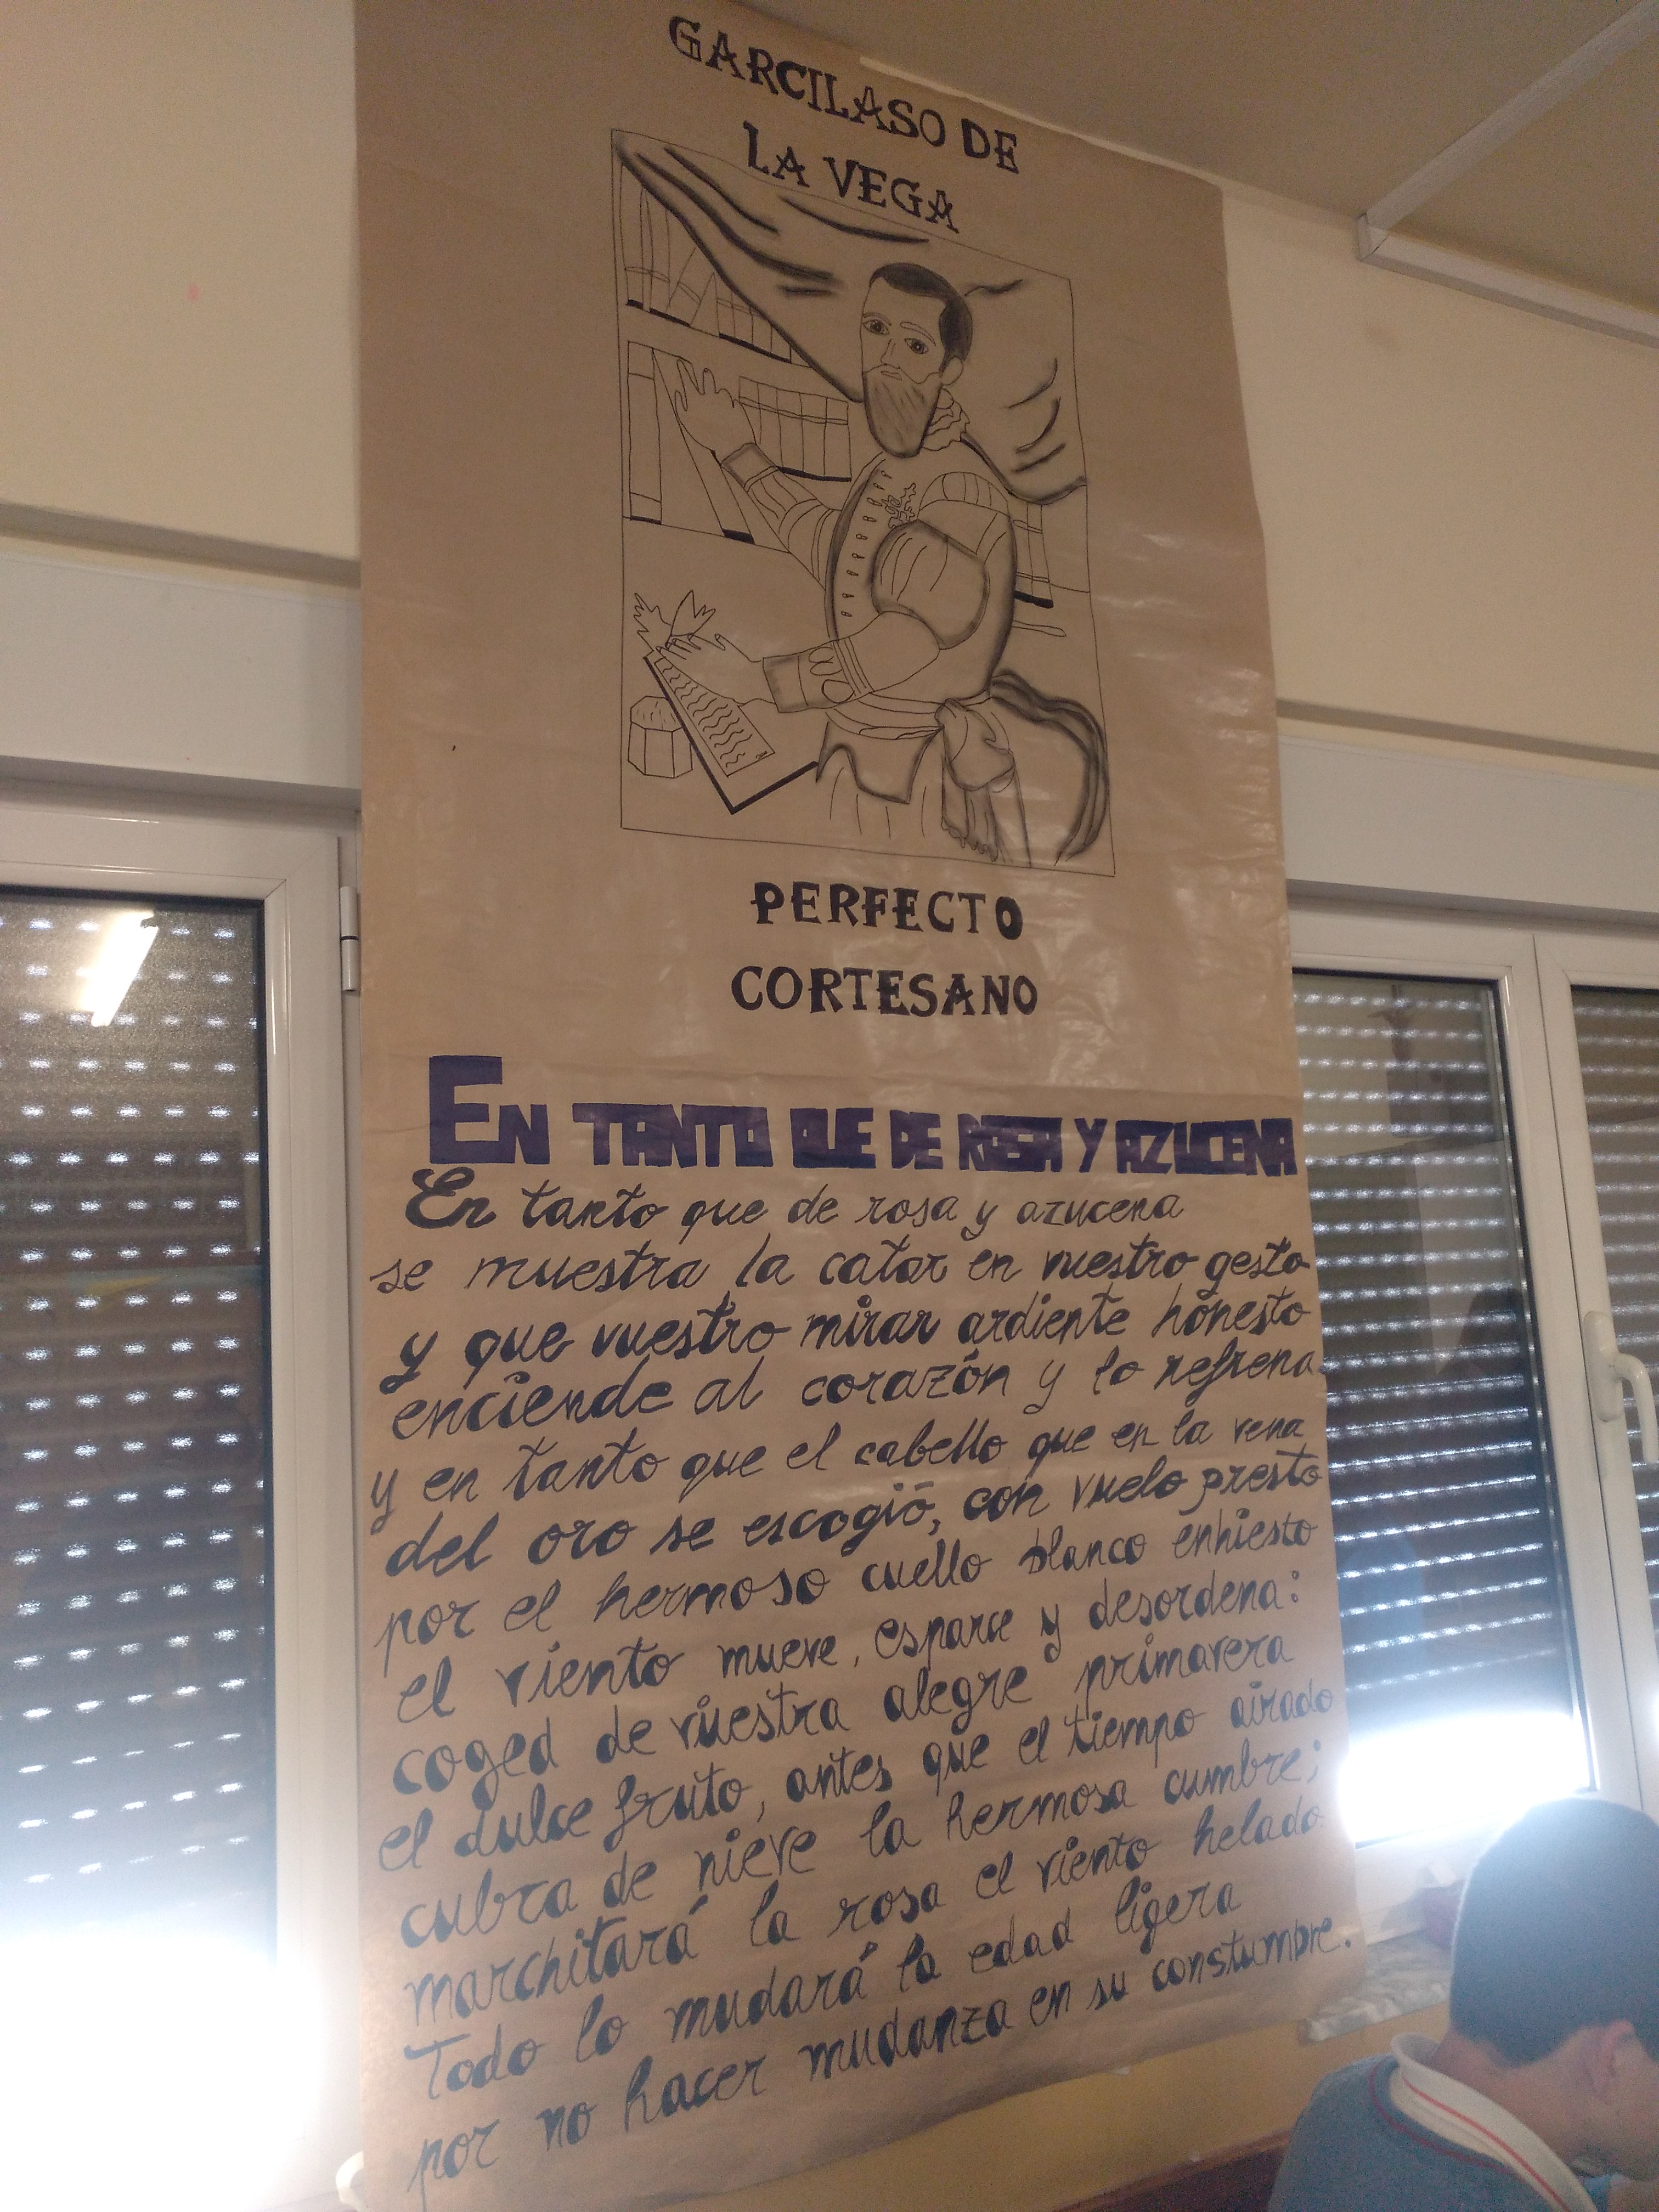 GARCILASO DE
LA VEGA
PERFECTO
CORTESANO
EN TANTO QUE DE ROSA Y AZUCENA
En tanto que de rosa y azucena
se muestra la catar en vuestro gesto
y que vuestro mirar ardiente honesto
enciende al corazón y lo refrena
y en tanto que el cabello que en la vena
del oro se escogió, con vuelo presto
por el hermoso cuello blanco enhiesto
el viento mueve, esparce y desordena:
coged de vuestra alegre primavera
el dulce fruto, antes que el tiempo airado
cubra de nieve la hermosa cumbre;
marchitará la rosa el viento helado
Todo lo mudará la edad ligera
por no hacer mudanza en su constumbre.